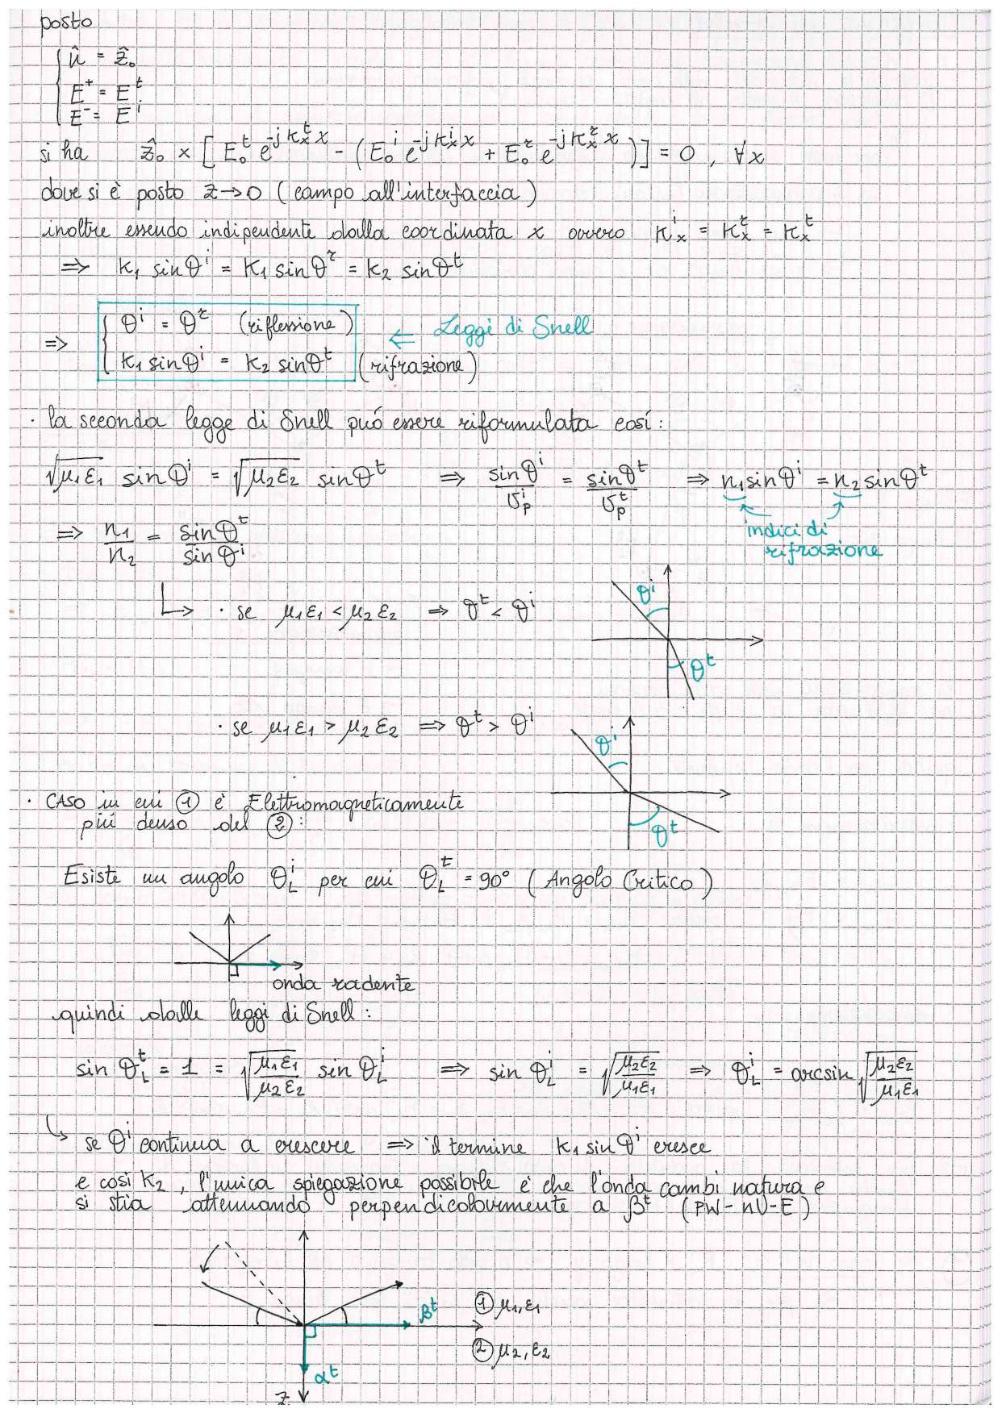 posto
n̂ = ẑ₀
E⁺ = Eᵗ
E⁻ = Eⁱ
si ha ẑ₀ × [ E₀ᵗ e^{-jkₓᵗx} - (E₀ⁱ e^{-jkₓⁱx} + E₀ʳ e^{-jkₓʳx}) ] = 0 , ∀x
dove si è posto z→0 (campo all'interfaccia)
inoltre essendo indipendente dalla coordinata x ovvero kₓⁱ = kₓʳ = kₓᵗ
⇒ k₁ sinθⁱ = k₁ sinθʳ = k₂ sinθᵗ
⇒ θⁱ = θʳ (riflessione) ⇐ Leggi di Snell
k₁ sinθⁱ = k₂ sinθᵗ (rifrazione)
· la seconda legge di Snell puó essere riformulata cosí:
√μ₁ε₁ sinθⁱ = √μ₂ε₂ sinθᵗ ⇒ sinθⁱ/υₚⁱ = sinθᵗ/υₚᵗ ⇒ n₁sinθⁱ = n₂sinθᵗ
indici di
rifrazione
⇒ n₁/n₂ = sinθᵗ/sinθⁱ
↳ · se μ₁ε₁ < μ₂ε₂ ⇒ θᵗ < θⁱ
θⁱ
θᵗ
· se μ₁ε₁ > μ₂ε₂ ⇒ θᵗ > θⁱ
θⁱ
θᵗ
· CASO in cui ① è Elettromagneticamente
piú denso del ②:
Esiste un angolo θ_Lⁱ per cui θ_Lᵗ = 90° (Angolo Critico)
onda radente
quindi dalle leggi di Snell:
sin θ_Lᵗ = 1 = √(μ₁ε₁/μ₂ε₂) sin θ_Lⁱ ⇒ sin θ_Lⁱ = √(μ₂ε₂/μ₁ε₁) ⇒ θ_Lⁱ = arcsin √(μ₂ε₂/μ₁ε₁)
↳ se θⁱ continua a crescere ⇒ il termine k₁ sinθⁱ cresce
e cosí k₂, l'unica spiegazione possibile è che l'onda cambi natura e
si stia attenuando perpendicolarmente a βᵗ (PW-NU-E)
① μ₁,ε₁
βᵗ
② μ₂,ε₂
αᵗ
z